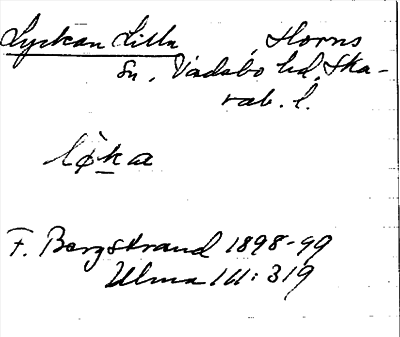 Lyckan Lilla, Horns
Sn, Vadsbo hd, Ska-
rab. l.
løka
F. Bergstrand 1898-99
Ulma 161:319